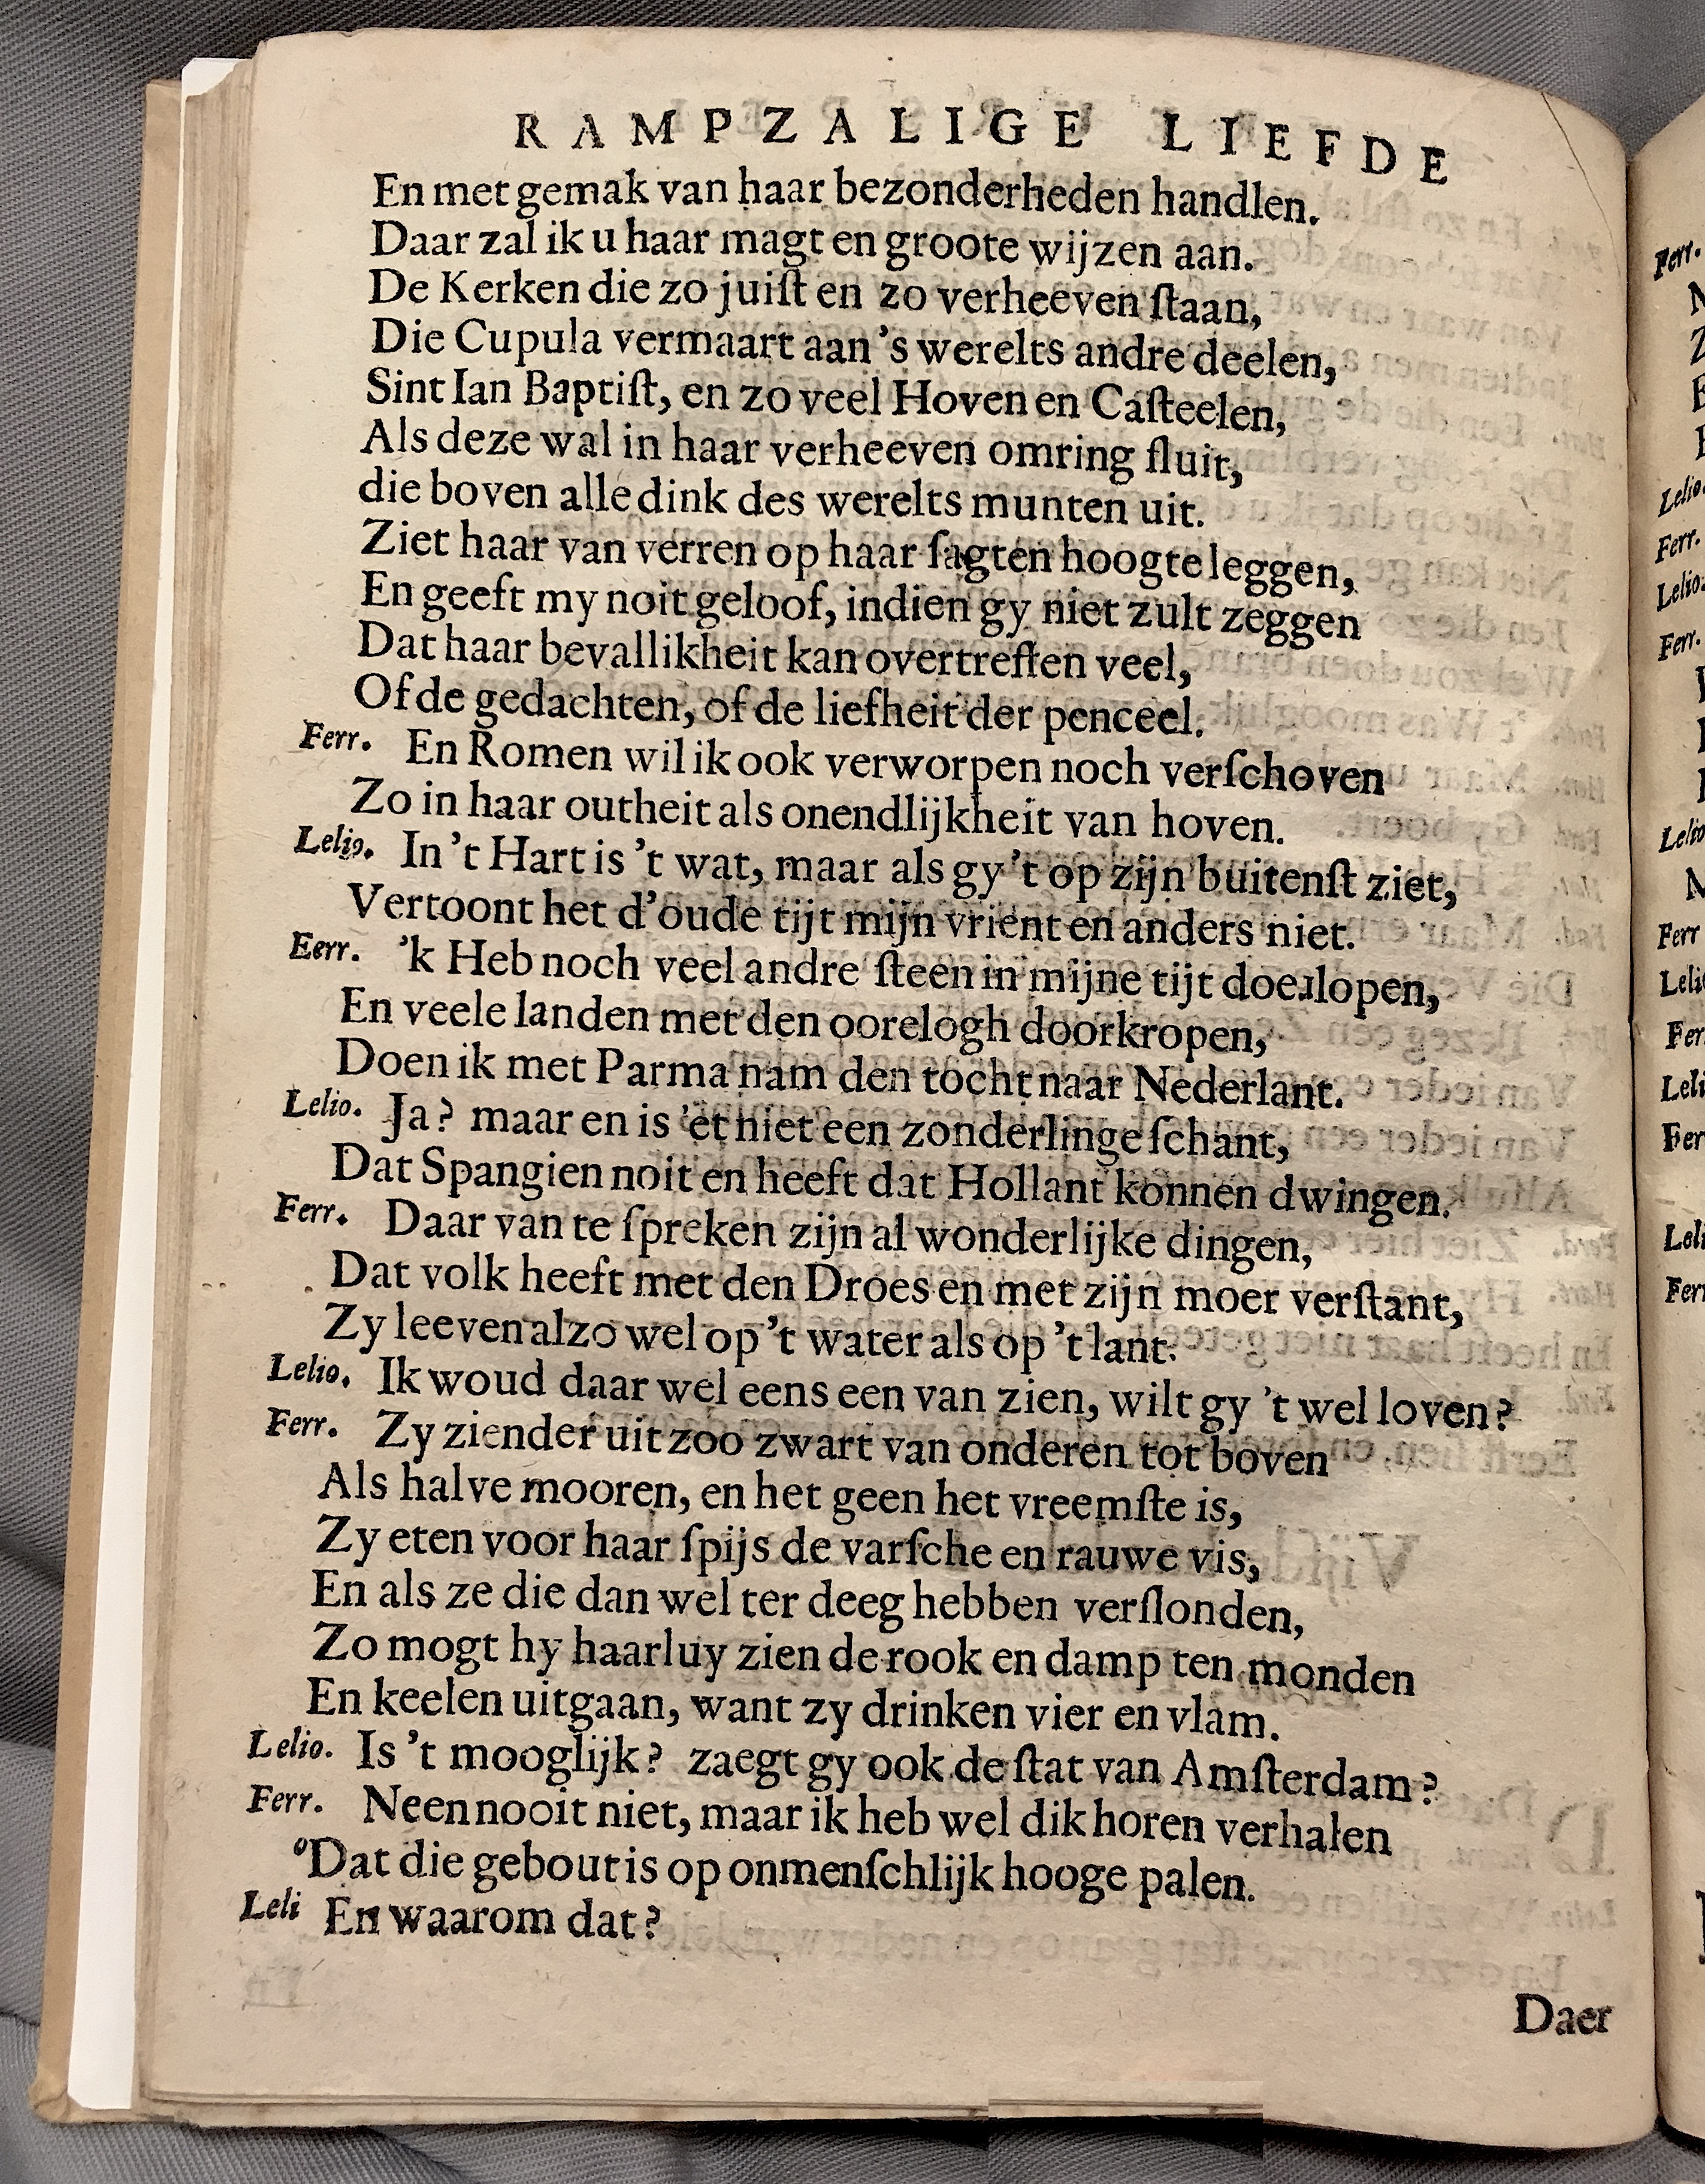 RAMPZALIGE LIEFDE
En met gemak van haar bezonderheden handlen.
Daar zal ik u haar magt en groote wijzen aan.
De Kerken die zo juiſt en zo verheeven ſtaan,
Die Cupula vermaart aan 's werelts andre deelen,
Sint Ian Baptiſt, en zo veel Hoven en Caſteelen,
Als deze wal in haar verheeven omring ſluit,
die boven alle dink des werelts munten uit.
Ziet haar van verren op haar ſagten hoogte leggen,
En geeft my noit geloof, indien gy niet zult zeggen
Dat haar bevallikheit kan overtreffen veel,
Of de gedachten, of de liefheit der penceel.
Ferr. En Romen wil ik ook verworpen noch verſchoven
Zo in haar outheit als onendlijkheit van hoven.
Lelio. In 't Hart is 't wat, maar als gy 't op zijn buitenſt ziet,
Vertoont het d'oude tijt mijn vrient en anders niet.
Eerr. 'k Heb noch veel andre ſteen in mijne tijt doerlopen,
En veele landen met den oorelogh doorkropen,
Doen ik met Parma nam den tocht naar Nederlant.
Lelio. Ja? maar en is 'et niet een zonderlinge ſchant,
Dat Spangien noit en heeft dat Hollant konnen dwingen.
Ferr. Daar van te ſpreken zijn al wonderlijke dingen,
Dat volk heeft met den Droes en met zijn moer verſtant,
Zy leeven alzo wel op 't water als op 't lant.
Lelio. Ik woud daar wel eens een van zien, wilt gy 't wel loven?
Ferr. Zy ziender uit zoo zwart van onderen tot boven
Als halve mooren, en het geen het vreemſte is,
Zy eten voor haar ſpijs de varſche en rauwe vis,
En als ze die dan wel ter deeg hebben verſlonden,
Zo mogt hy haarluy zien de rook en damp ten monden
En keelen uitgaan, want zy drinken vier en vlam.
Lelio. Is 't mooglijk? zaegt gy ook de ſtat van Amſterdam?
Ferr. Neen nooit niet, maar ik heb wel dik horen verhalen
oDat die gebout is op onmenſchlijk hooge palen.
Leli En waarom dat?
Daer